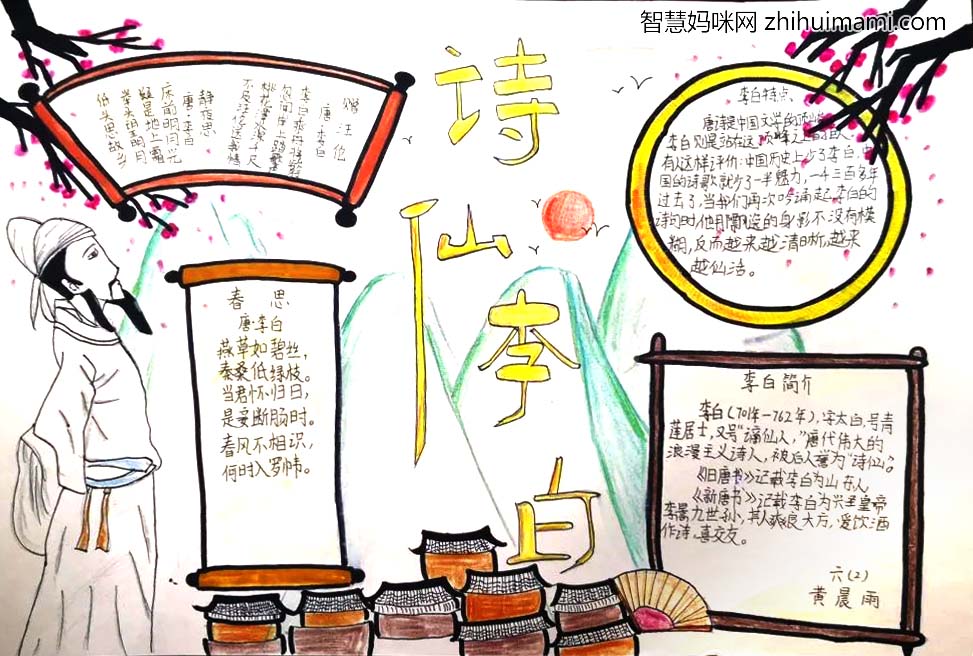 智慧妈咪网 zhihuimami.com
诗仙李白
赠汪伦
唐·李白
李白乘舟将欲行
忽闻岸上踏歌声
桃花潭水深千尺
不及汪伦送我情
静夜思
唐·李白
床前明月光
疑是地上霜
举头望明月
低头思故乡
春思
唐·李白
燕草如碧丝,
秦桑低绿枝。
当君怀归日,
是妾断肠时。
春风不相识,
何时入罗帏。
李白特点、
唐诗是中国文学的顶
李白则是站在这顶峰之上的诗人。
有人这样评价:中国历史上少了李白,中
国的诗歌就少了一半魅力,一千三百多年
过去了,当我们再次吟诵起李白的
诗句时他那飘逸的身影不没有模
糊,反而越来越清晰,越来
越仙活。
李白简介
李白(701年—762年),字太白,号青
莲居士,又号“谪仙人,”唐代伟大的
浪漫主义诗人,被后人誉为“诗仙。”
《旧唐书》记载李白为山东人,
《新唐书》记载李白为兴圣皇帝
李暠九世孙,其人爽良大方,爱饮酒
作诗,喜交友。
六(2)
黄晨雨